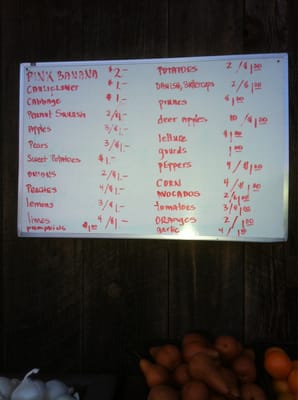 PINK BANANA $2.-
CAULIFLOWER $1.-
Cabbage $1.-
Peanut Squash 2/$1.-
Apples 3/$1.-
Pears 3/$1.-
Sweet Potatoes $1.-
ONIONS 2/$1.-
Peaches 4/$1.-
lemons 3/$1.-
limes 4/$1.-
pumpkins $1.00
POTATOES 2/$1.00
Danish, Buttercups 2/$1.00
prunes $1.00
deer apples 10/$1.00
lettuce $1.00
gourds 1.00
peppers 4/$1.00
CORN 4/$1.00
AVOCADOS 2/$1.00
tomatoes 3/$1.00
ORANGES 2/1.00
garlic 4/1.00